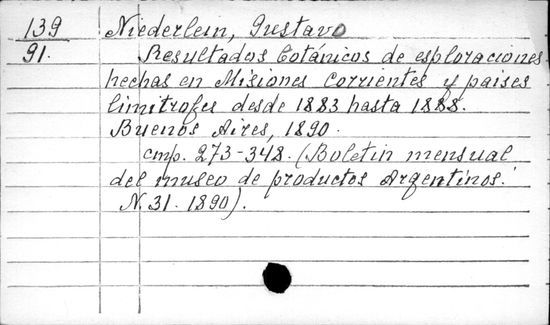 139 Niederlein, Gustavo
91. Resultados botánicos de esploraciones
hechas en Misiones Corrientes y paises
limitrofes desde 1883 hasta 1888.
Buenos Aires, 1890.
стр. 273-348. (Boletin mensual
del museo de productos Argentinos.
N. 31. 1890).